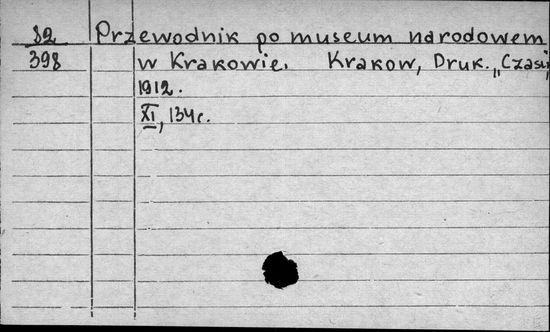 82 Przewodnik po museum narodowem
398 w Krakowie. Krakow, Druk. „Czasu”
1912.
XI, 134 с.